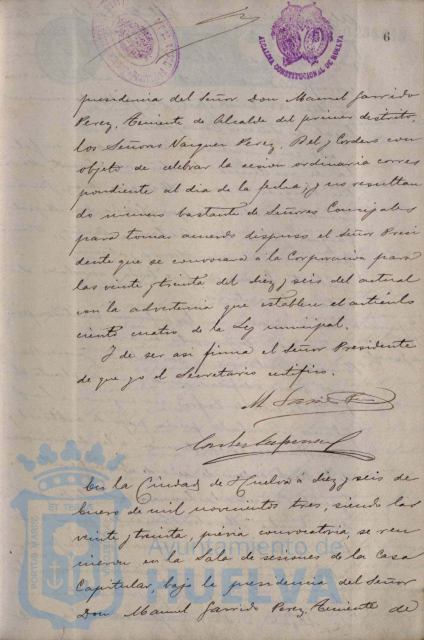 6
ALCALDIA CONSTITUCIONAL DE HUELVA
presidencia del Señor Don Manuel Garrido
Perez, Teniente de Alcalde del primer distrito,
los Señores Vazquez Perez, Rel y Cordero con
objeto de celebrar la sesion ordinaria corres
pondiente al dia de la fecha; y no resultan
do número bastante de Señores Concejales
para tomar acuerdo dispuso el señor Presi
dente que se convocara a la Corporación para
las veinte y treinta del diez y seis del actual
con la advertencia que establece el artículo
ciento cuatro de la Ley municipal.
Y de ser asi firma el Señor Presidente
de que yo el Secretario certifico.
M. Garrido P.
En la Ciudad de Huelva á diez y seis de
Enero de mil novecientos tres, siendo las
veinte y treinta, previa convocatoria, se reu
nieron en la Sala de sesiones de la Casa
Capitular, bajo la presidencia del Señor
Don Manuel Garrido Perez, Teniente de
PORTUS MARIS
Ayuntamiento de
HUELVA